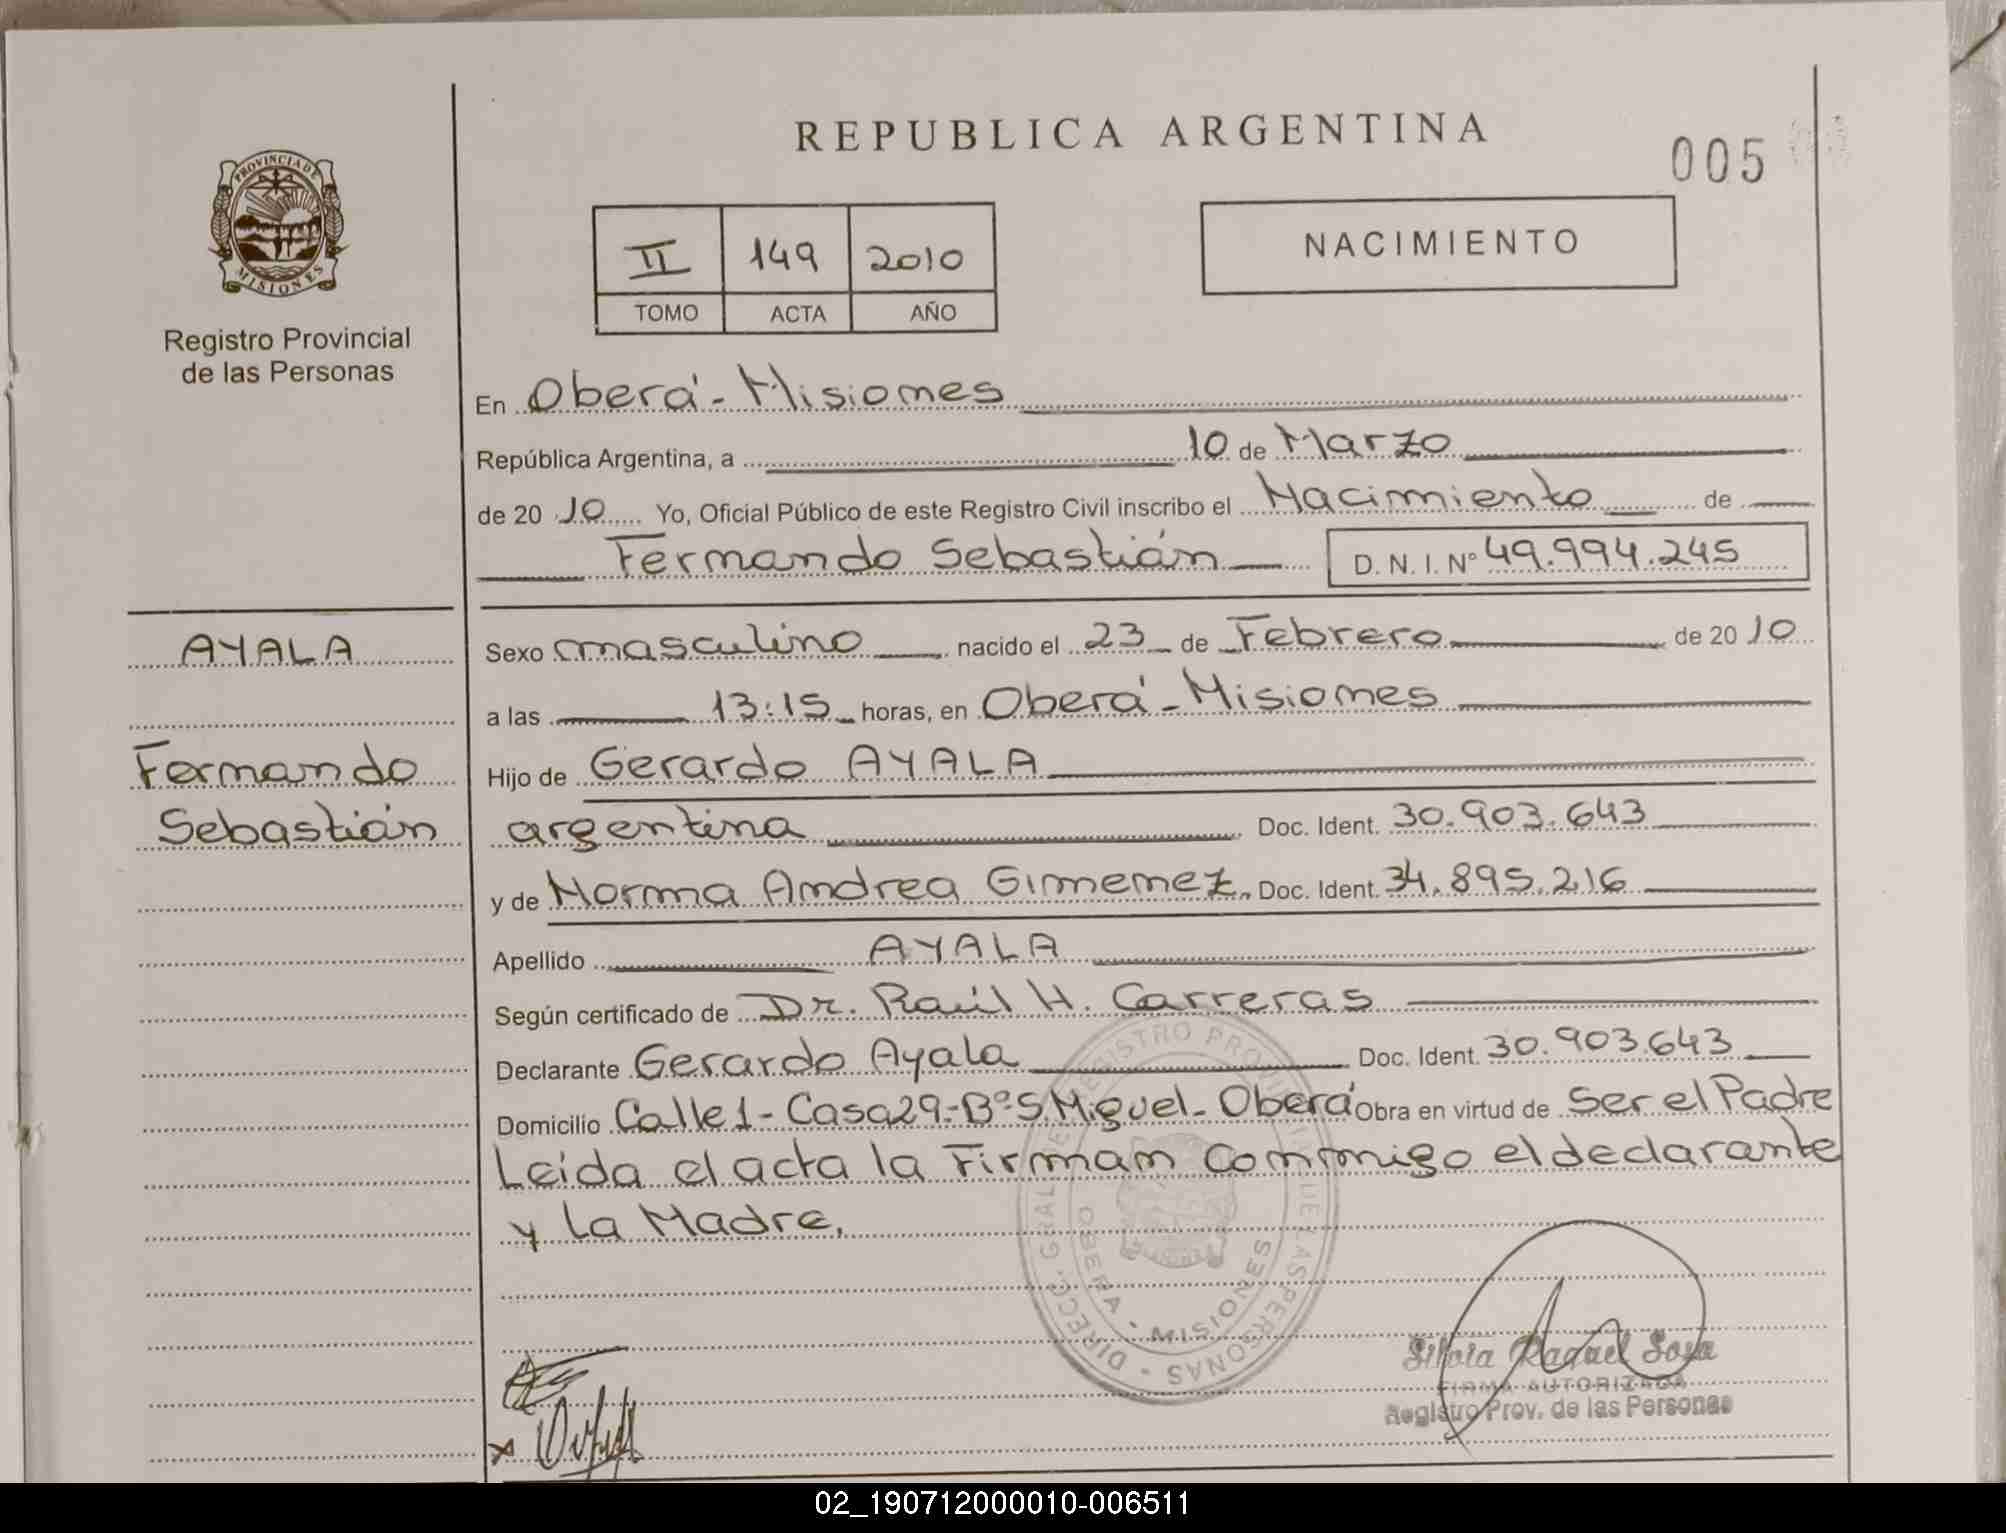 REPUBLICA ARGENTINA
005
PROVINCIA DE
MISIONES
Registro Provincial
de las Personas
II 149 2010
TOMO ACTA AÑO
NACIMIENTO
En Oberá - Misiones
República Argentina, a 10 de Marzo
de 20 10 Yo, Oficial Público de este Registro Civil inscribo el Nacimiento de
Fernando Sebastián D. N. I. Nº 49.994.245
AYALA
Fernando
Sebastián
Sexo masculino nacido el 23 de Febrero de 20 10
a las 13:15 horas, en Oberá - Misiones
Hijo de Gerardo AYALA
argentina Doc. Ident. 30.903.643
y de Norma Andrea Gimenez, Doc. Ident. 34.895.216
Apellido AYALA
Según certificado de Dr. Raúl H. Carreras
Declarante Gerardo Ayala Doc. Ident. 30.903.643
Domicilio Calle 1 - Casa 29 - Bº S. Miguel - Oberá Obra en virtud de Ser el Padre
Leida el acta la Firman conmigo el declarante
y la Madre.
DIREC. GRAL. DE REGISTRO PROVINCIAL DE LAS PERSONAS
OBERA - MISIONES
Silvia Raquel Sosa
FIRMA AUTORIZADA
Registro Prov. de las Personas
02_190712000010-006511